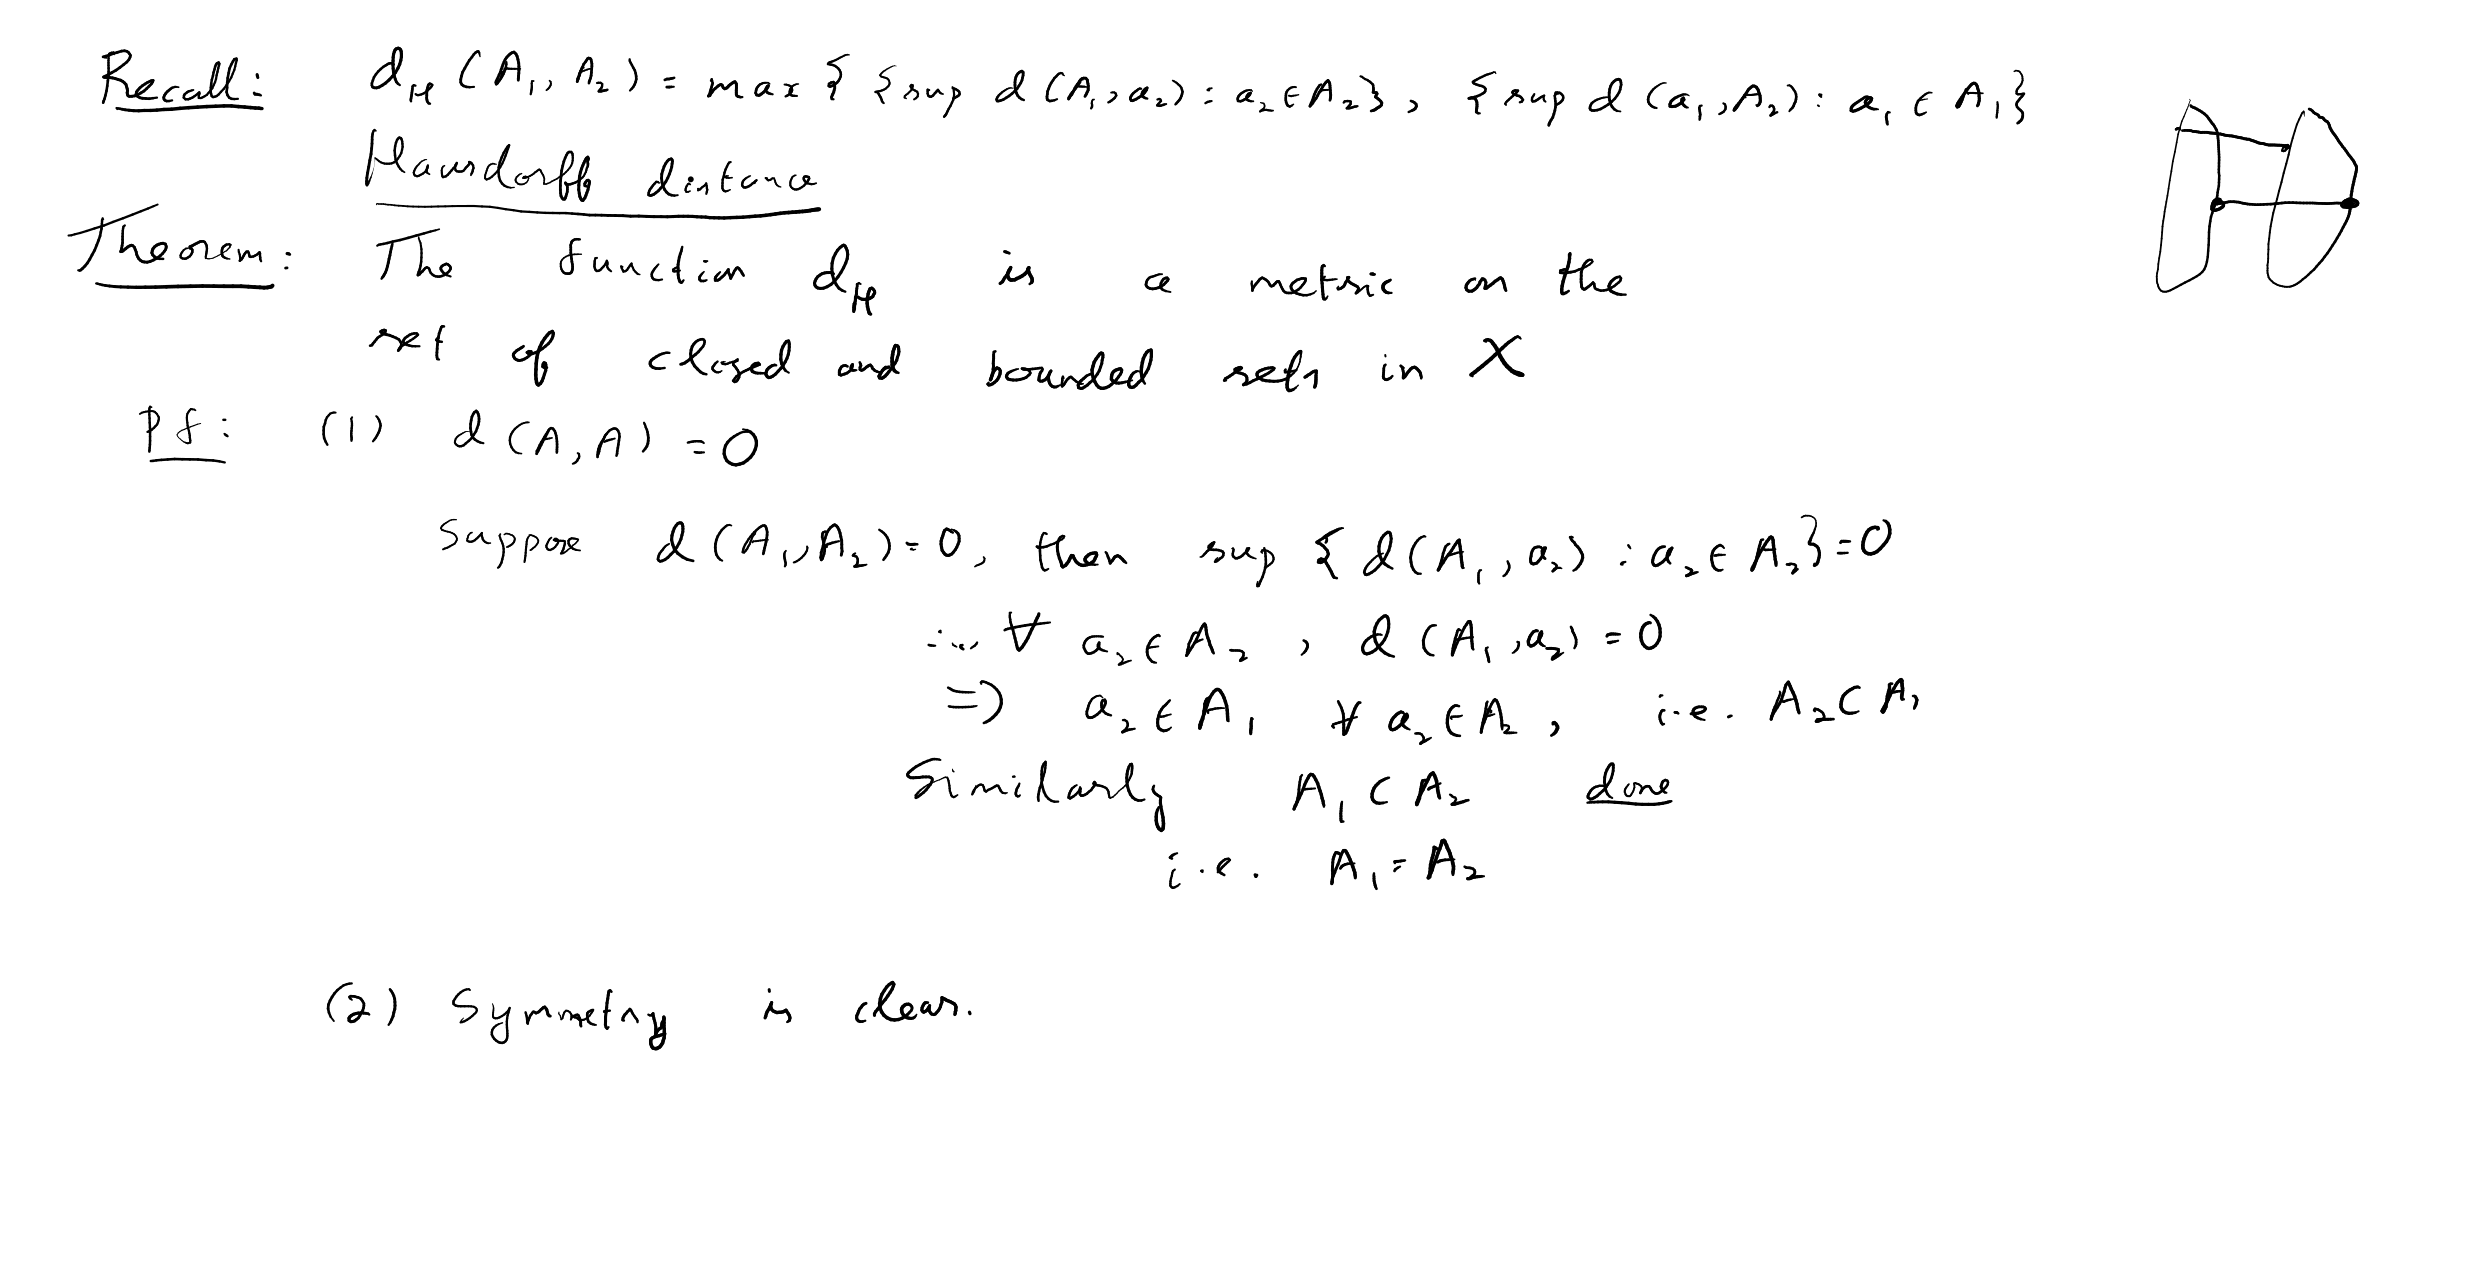 Recall: d_H (A₁, A₂) = max { {sup d (A₁, a₂) : a₂ ∈ A₂}, {sup d (a₁, A₂) : a₁ ∈ A₁}
Hausdorff distance
Theorem: The function d_H is a metric on the
set of closed and bounded sets in X
Pf: (1) d (A, A) = 0
Suppose d (A₁, A₂) = 0, then sup { d (A₁, a₂) : a₂ ∈ A₂} = 0
∀ a₂ ∈ A₂, d (A₁, a₂) = 0
=> a₂ ∈ A₁ ∀ a₂ ∈ A₂, i.e. A₂ ⊂ A₁
Similarly A₁ ⊂ A₂ done
i.e. A₁ = A₂
(2) Symmetry is clear.